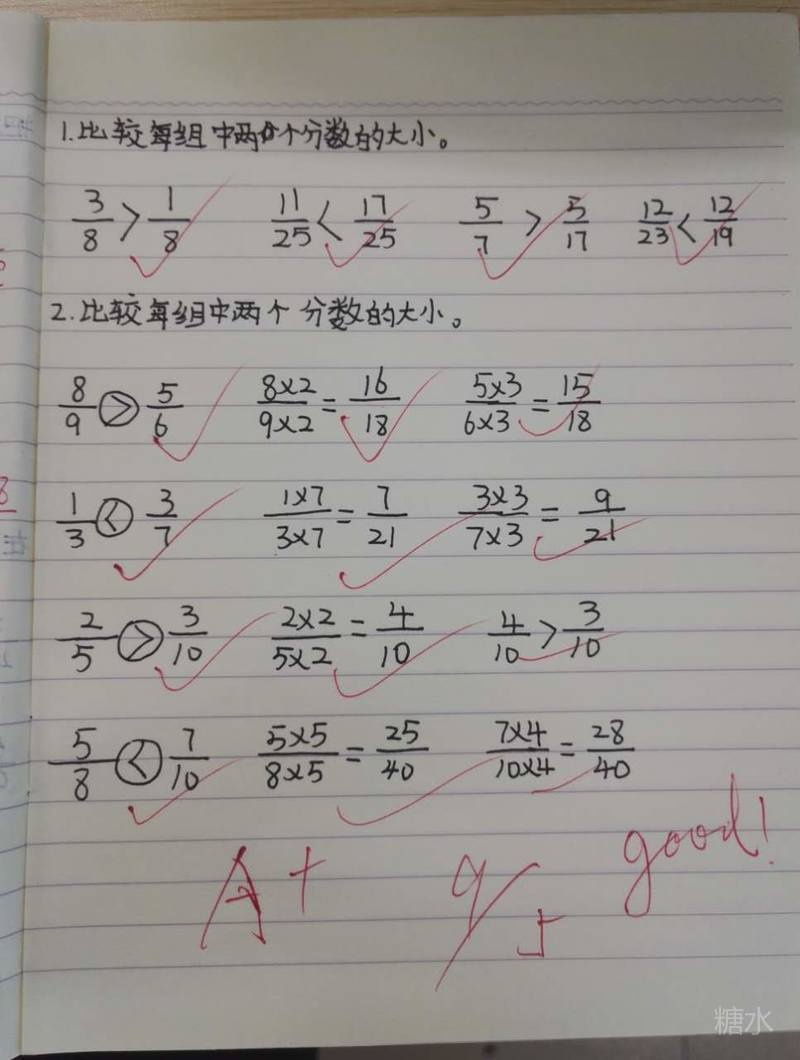 1.比较每组中两个分数的大小。
3/8 > 1/8 11/25 < 17/25 5/7 > 5/17 12/23 < 12/19
2.比较每组中两个分数的大小。
8/9 > 5/6 8×2/9×2 = 16/18 5×3/6×3 = 15/18
1/3 < 3/7 1×7/3×7 = 7/21 3×3/7×3 = 9/21
2/5 > 3/10 2×2/5×2 = 4/10 4/10 > 3/10
5/8 < 7/10 5×5/8×5 = 25/40 7×4/10×4 = 28/40
A+ 9/5 good!
糖水